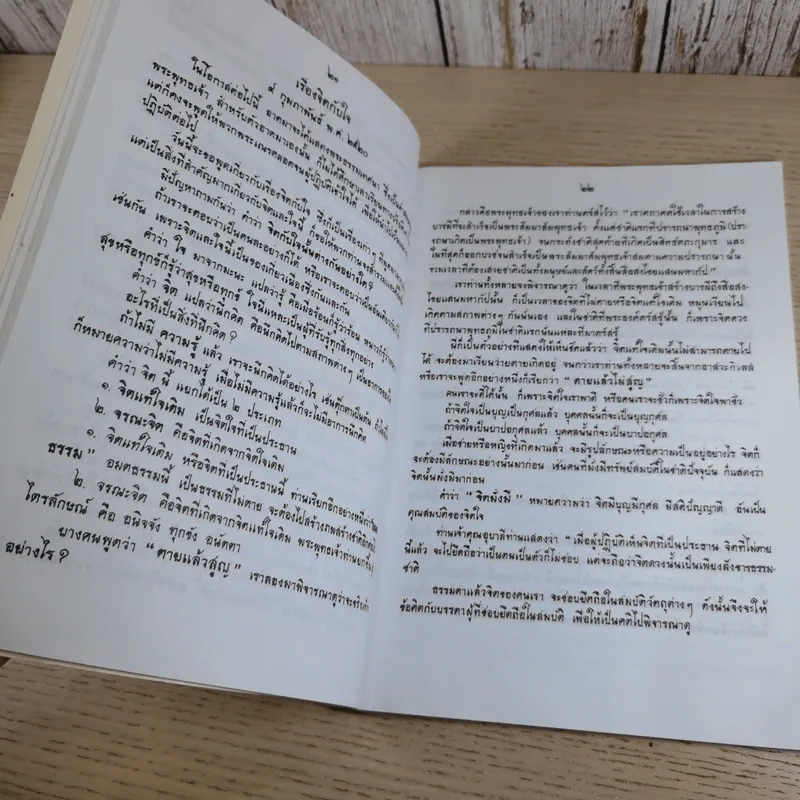 ๒๑
เรื่องจิตกับใจ
๙ กุมภาพันธ์ พ.ศ. ๒๕๒๐
ในโอกาสต่อไปนี้ อาตมาจะได้แสดงพระธรรมเทศนา
พระพุทธเจ้า สำหรับตัวอาตมาเองนั้น ก็ไม่ได้ศึกษา
แต่ก็คงจะพูดให้พวกพระเณรตลอดจนผู้ปฏิบัติเข้าใจได้
ปฏิบัติต่อไป
วันนี้จะขอพูดเกี่ยวกับเรื่องจิตกับใจ ซึ่งก็เป็นเรื่องเก่าๆ
แต่เป็นสิ่งที่สำคัญมากเกี่ยวกับจิตและใจนี้
มีปัญหาถามกันว่า คำว่า จิตกับใจนั้นต่างกันอย่างใด?
ถ้าเราจะตอบว่าเป็นคนละอย่างก็ได้ หรือเราจะตอบว่าเป็นอัน
เช่นกัน เพราะจิตและใจนี้เป็นของเกี่ยวเนื่องซึ่งกันและกัน
คำว่า ใจ มาจากมะนะ แปลว่า รู้ คือเมื่อร้อนก็รู้ว่าร้อน
สุขหรือทุกข์ก็รู้ว่าสุขหรือทุกข์ ใจนี้แหละเป็นผู้ที่รับรู้ทุกสิ่งทุกอย่าง
คำว่า จิต แปลว่านึกคิด คือนึกคิดไปตามสภาพต่างๆ
อะไรที่เป็นสิ่งที่นึกคิด?
ถ้าไม่มี ความรู้ แล้ว เราจะนึกคิดได้อย่างไร
ก็หมายความว่าไม่มีความรู้ เมื่อไม่มีความรู้แล้วก็จะไม่มีอาการนึกคิด
คำว่า จิต นี้ แยกได้เป็น ๒ ประเภท
๑. จิตแท้ใจเดิม เป็นจิตใจที่เป็นประธาน
๒. จรณะจิต คือจิตที่เกิดจากจิตใจเดิม
๑. จิตแท้ใจเดิม หรือจิตที่เป็นประธานนี้ ท่านเรียกอีกอย่างหนึ่งว่า
ธรรม” อมตธรรมนี้ เป็นธรรมที่ไม่ตาย จะต้องไปสร้างภพสร้างชาติ
๒. จรณะจิต คือจิตที่เกิดจากจิตแท้ใจเดิม พระพุทธเจ้าท่าน
ไตรลักษณ์ คือ อนิจจัง ทุกขัง อนัตตา
บางคนพูดว่า “ ตายแล้วสูญ” เราลองมาพิจารณาดูว่าจะจริง
อย่างไร?
๒๒
กล่าวคือพระพุทธเจ้าของเราท่านตรัสไว้ว่า “ เราตถาคตใช้เวลาในการสร้าง
บารมีที่จะสำเร็จเป็นพระสัมมาสัมพุทธเจ้า ตั้งแต่ชาติแรกที่ปรารถนาพุทธภูมิ(ปรา
รถนาเกิดเป็นพระพุทธเจ้า) จนกระทั่งชาติสุดท้ายที่เกิดเป็นสิทธัตถะกุมาร และ
ในที่สุดก็ออกบวชจนสำเร็จเป็นพระสัมมาสัมพุทธเจ้าสมตามความปรารถนา นั้น
รวมเวลาที่ต้องเสวยชาติเป็นทั้งมนุษย์และสัตว์ทั้งสิ้นสี่อสงไขยแสนมหากัป”
เราท่านทั้งหลายจงพิจารณาดูว่า ในเวลาที่พระพุทธเจ้าสร้างบารมีถึงสี่อสง
ไขยแสนมหากัปนั้น ก็เป็นเวลาของจิตที่ไม่ตายหรือจิตแท้ใจเดิม หมุนเวียนไป
เกิดตามสภาพต่างๆ กันนั่นเอง และในชาติที่พระองค์ตรัสรู้นั้น ก็เพราะจิตดวง
ที่ปรารถนาพุทธภูมิในชาติแรกนั่นแหละที่มาตรัสรู้
นี่ก็เป็นตัวอย่างที่แสดงให้เห็นชัดแล้วว่า จิตแท้ใจเดิมนั้นไม่สามารถตายไป
ได้ จะต้องมาเวียนว่ายตายเกิดอยู่ จนกว่าเราท่านทั้งหลายจะสิ้นจากอาสวะกิเลส
หรือเราจะพูดอีกอย่างหนึ่งก็เรียกว่า “ ตายแล้วไม่สูญ”
คนเราจะดีได้นั้น ก็เพราะจิตใจเราพาดี หรือคนเราจะชั่วก็เพราะจิตใจพาชั่ว
ถ้าจิตใจเป็นบุญเป็นกุศลแล้ว บุคคลนั้นก็จะเป็นบุญกุศล
ถ้าจิตใจเป็นบาปอกุศลแล้ว บุคคลนั้นก็จะเป็นบาปอกุศล
เมื่อชายหรือหญิงที่เกิดมาแล้ว จะมีรูปลักษณะหรือความเป็นอยู่อย่างไร จิตก็
จะต้องมีลักษณะอย่างนั้นมาก่อน เช่นคนที่มั่งมีทรัพย์สมบัติในชาติปัจจุบัน ก็แสดงว่า
จิตนั้นมั่งมีมาก่อน
คำว่า “ จิตมั่งมี” หมายความว่า จิตมีบุญมีกุศล มีสติปัญญาดี อันเป็น
คุณสมบัติของจิตใจ
ท่านเจ้าคุณอุบาลีท่านแสดงว่า “ เมื่อผู้ปฏิบัติเห็นจิตที่เป็นประธาน จิตที่ไม่ตาย
นี้แล้ว จะไปยึดถือว่าเป็นตนเป็นตัวก็ไม่ชอบ แต่จะถือว่าจิตดวงนั้นเป็นเพียงสังขารธรรม-
ชาติ
ธรรมดาแล้วจิตของคนเรา จะชอบยึดถือในสมบัติวัตถุต่างๆ ดังนั้นจึงจะให้
ข้อคิดกับบรรดาผู้ที่ชอบยึดถือในสมบัติ เพื่อให้เป็นคติไปพิจารณาดู